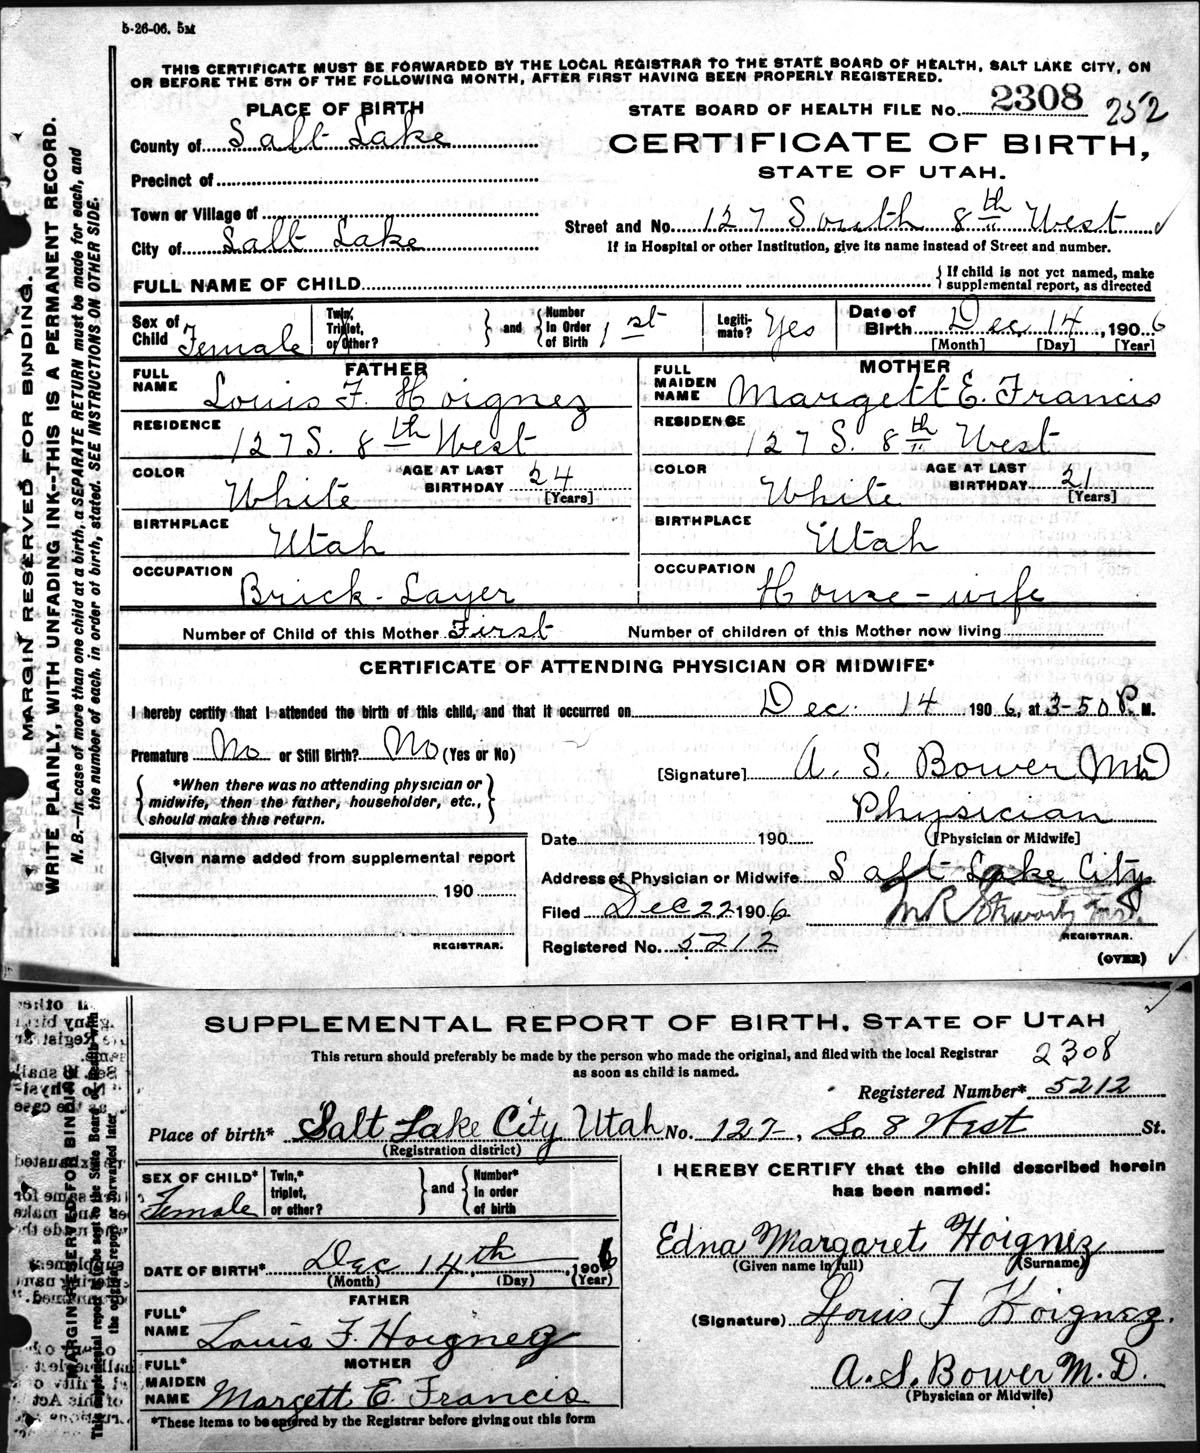 5-26-06. 5M
THIS CERTIFICATE MUST BE FORWARDED BY THE LOCAL REGISTRAR TO THE STATE BOARD OF HEALTH, SALT LAKE CITY, ON
OR BEFORE THE 5TH OF THE FOLLOWING MONTH, AFTER FIRST HAVING BEEN PROPERLY REGISTERED.
MARGIN RESERVED FOR BINDING.
WRITE PLAINLY, WITH UNFADING INK--THIS IS A PERMANENT RECORD.
N. B.—In case of more than one child at a birth, a SEPARATE RETURN must be made for each, and
the number of each, in order of birth, stated. SEE INSTRUCTIONS ON OTHER SIDE.
PLACE OF BIRTH
County of Salt Lake
Precinct of
Town or Village of
City of Salt Lake
STATE BOARD OF HEALTH FILE No. 2308 252
CERTIFICATE OF BIRTH,
STATE OF UTAH.
Street and No. 127 South 8th West
If in Hospital or other Institution, give its name instead of Street and number.
FULL NAME OF CHILD
If child is not yet named, make
supplemental report, as directed
Sex of Child Female
Twin, Triplet, or Other?
and Number In Order of Birth 1st
Legiti- mate? Yes
Date of Birth Dec 14, 1906
[Month] [Day] [Year]
FATHER
FULL NAME Louis F. Hoignez
RESIDENCE 127 S. 8th West
COLOR White AGE AT LAST BIRTHDAY 24 [Years]
BIRTHPLACE Utah
OCCUPATION Brick-Layer
MOTHER
FULL MAIDEN NAME Margett E. Francis
RESIDENCE 127 S. 8th West
COLOR White AGE AT LAST BIRTHDAY 21 [Years]
BIRTHPLACE Utah
OCCUPATION House-wife
Number of Child of this Mother First Number of children of this Mother now living
CERTIFICATE OF ATTENDING PHYSICIAN OR MIDWIFE*
I hereby certify that I attended the birth of this child, and that it occurred on Dec. 14 1906, at 3-50 P. M.
Premature No or Still Birth? No (Yes or No)
*When there was no attending physician or
midwife, then the father, householder, etc.,
should make this return.
[Signature] A. S. Bower MD
Physician
[Physician or Midwife]
Date 190
Address of Physician or Midwife Salt Lake City
Filed Dec 22 1906
REGISTRAR.
Registered No. 5212
(OVER)
Given name added from supplemental report
190
REGISTRAR.
SUPPLEMENTAL REPORT OF BIRTH, STATE OF UTAH
This return should preferably be made by the person who made the original, and filed with the local Registrar
as soon as child is named.
2308
Registered Number* 5212
Place of birth* Salt Lake City Utah No. 127, So 8 West St.
(Registration district)
SEX OF CHILD* Female
Twin,* triplet, or other?
and Number* In order of birth
DATE OF BIRTH* Dec 14th, 1906
(Month) (Day) (Year)
FATHER
FULL* NAME Louis F. Hoignez
MOTHER
FULL* MAIDEN NAME Margett E. Francis
*These items to be entered by the Registrar before giving out this form
I HEREBY CERTIFY that the child described herein
has been named:
Edna Margaret Hoignez
(Given name in full) (Surname)
(Signature) Louis F Hoignez.
A. S. Bower M. D.
(Physician or Midwife)
MARGIN RESERVED FOR BINDING